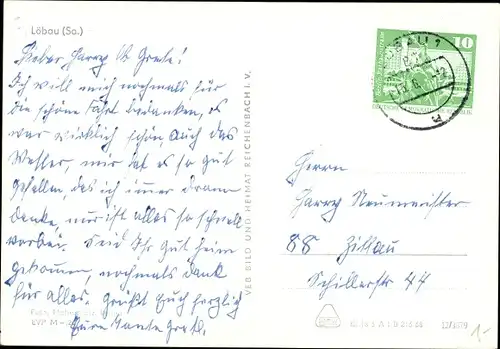 Löbau (Sa.)
Lieber Harry u. Grete!
Ich will mich nochmals für
die schöne Fahrt bedanken, es
war wirklich schön, auch das
Wetter, mir hat es so gut
gefallen, das ich immer dran
denke, nur ist alles so schnell
vorbei. Seid Ihr gut heim
gekommen, nochmals dank
für alles. Grüßt Euch herzlich
Eure Tante Gretl.
VEB BILD UND HEIMAT REICHENBACH I. V.
10
Herrn
Harry Neumeister
88 Zittau
Schillerstr 44
12/3079
1-